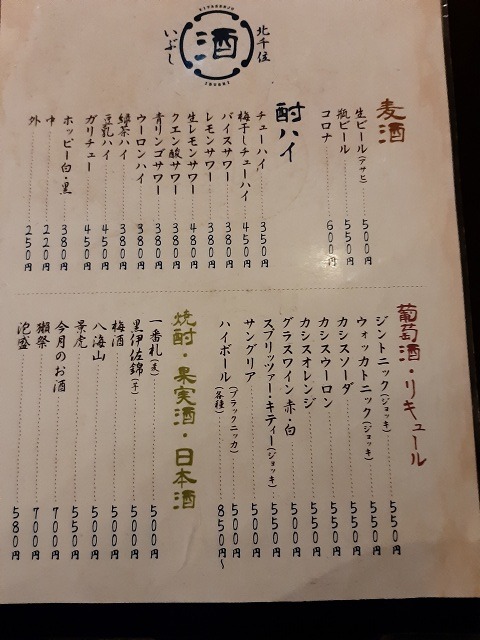 北千住
酒
いぶし
麦酒
生ビール(アサヒ) 500円
瓶ビール 550円
コロナ 600円
酎ハイ
チューハイ 350円
梅干しチューハイ 450円
バイスサワー 380円
レモンサワー 380円
生レモンサワー 480円
クエン酸サワー 380円
青リンゴサワー 380円
ウーロンハイ 380円
緑茶ハイ 380円
豆乳ハイ 450円
ガリチュー 450円
ホッピー白・黒 380円
中 220円
外 250円
葡萄酒・リキュール
ジントニック(ジョッキ) 550円
ウォッカトニック(ジョッキ) 550円
カシスソーダ 550円
カシスウーロン 550円
カシスオレンジ 550円
グラスワイン 赤・白 500円
スプリッツァー・キティー(ジョッキ) 550円
サングリア 500円
ハイボール(ブラックニッカ) 500円
(各種) 850円〜
焼酎・果実酒・日本酒
一番札(麦) 500円
黒伊佐錦(芋) 500円
梅酒 500円
八海山 500円
景虎 550円
今月のお酒 700円
獺祭 700円
泡盛 580円